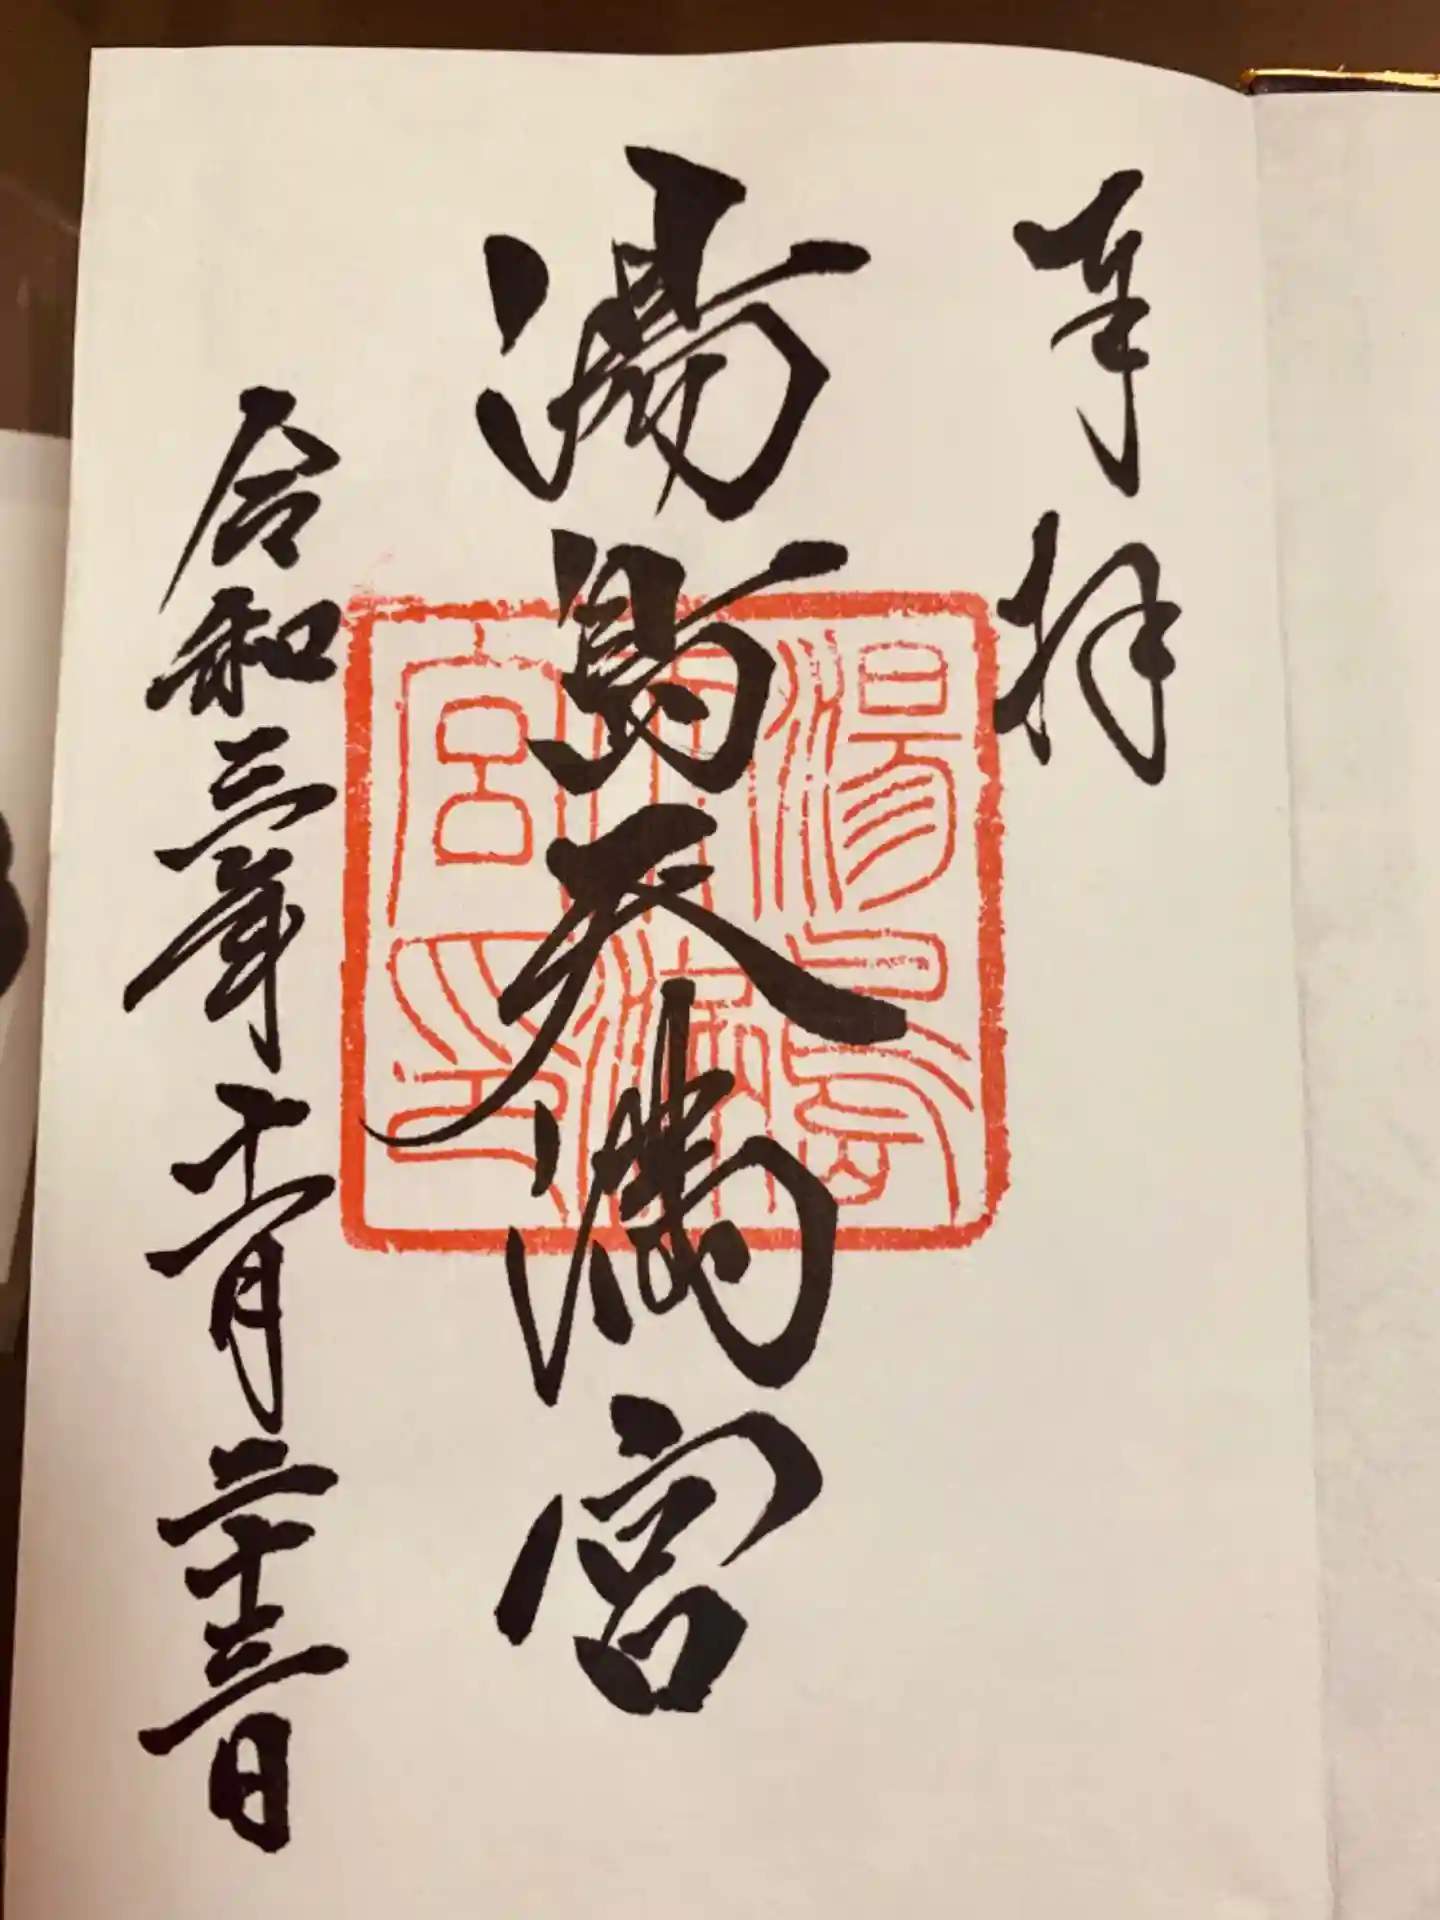 奉拝
湯島天満宮
令和三年十一月二十三日
湯島
天満
宮印